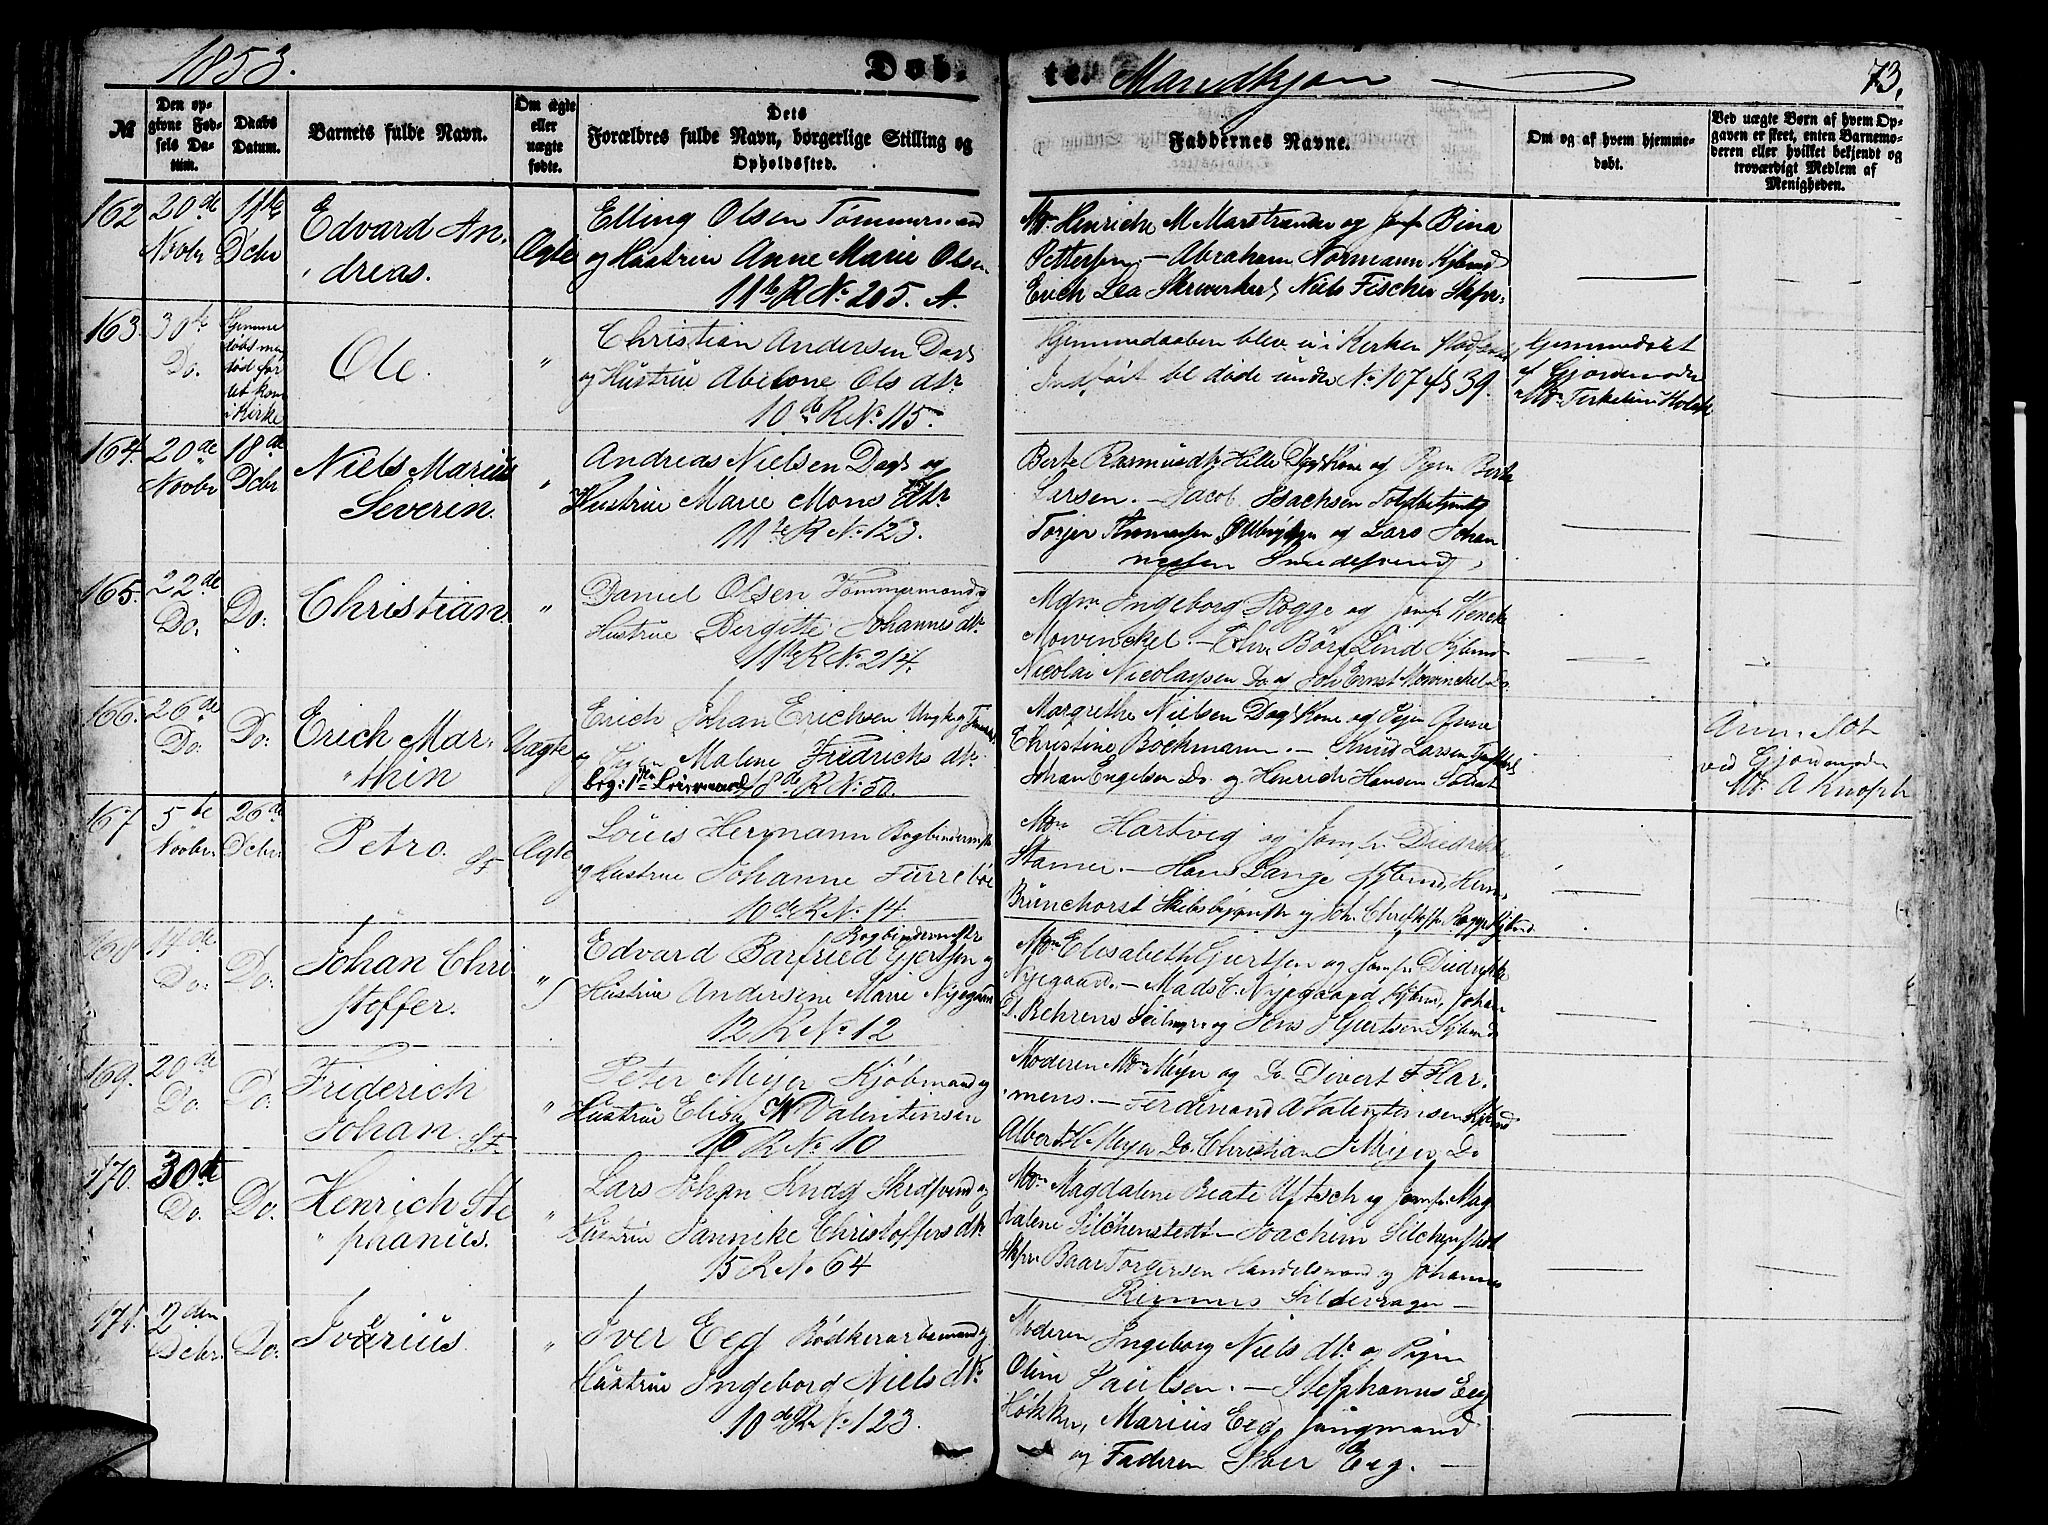 1853.
Døb-
te. Mandkjøn
73.
№
Den op-
givne Fød-
sels Da-
tum.
Daabs
Datum.
Barnets fulde Navn.
Om ægte
eller
uægte
fødte.
Dets
Forældres fulde Navn, borgerlige Stilling og
Opholdssted.
Faddernes Navne.
Om og af hvem hjemme-
døbt.
Ved uægte Børn af hvem Op-
gaven er skeet, enten Barnemo-
deren eller hvilket bekjendt og
troværdigt Medlem af
Menigheden.
162
20de
Novbr
11te
Dcbr
Edvard An-
dreas.
Ægte
Elling Olsen Tømmermand
og Hustrue Anne Marie Olsen
11te R No 205. A.
Mm Henriche M Marstrander og Jomf Bina
Pettersen. – Abraham Normann Kjbmd
Erich Lea Skrverkerd Niels Fischer Skpr
163.
30te
Do.
Hjemme
døbt men
død før
det kom
i Kirke
Ole.
"
Christian Andersen Dagk
og Hustrue Abelone Ols dtr
10de R No 115.
Hjemmedaaben blev ei i Kirken stadfæstet
Indført bl døde under No 107 fS 39.
Hjemmedøbt
af Gjordemoder
Mm Terkeline Holck
164.
20de
Novbr
18de
Dcbr
Niels Marius
Severin.
"
Andreas Nielsen Dagk og
Hustrue Marie Mons dtr
11te R No 123.
Berte Rasmusdtr Hille Dagk Kone og Pigen Berte
Larsen. – Jacob Isachsen Toldbetjent
Torjer Thomassen og Lars Johan
nessen Smedesvend
165.
22de
Do.
Do:
Christian.
"
Daniel Olsen Tømmermand og
Hustrue Birgitte Johannes dtr
11te R No 214.
Mdm Ingeborg Rogge og Jomf Wencke
Mowinckel – Chr. Børs Lind Kjbmd
Nicolai Nicolaysen Do og Joh Ernst Mowinckel Do.
166.
26de
Do.
Do.
Erich Mar-
" thin
Uægte
Erich Johan Erichsen Ungk og Tømmermd
og Pigen Malene Fredrichs dtr
beg: 1ste Leiermaal 18de R No 50.
Margrethe Nielsen Dagk Kone og Pigen Anne
Christine Bockmann. – Knud Larsen
Johan Engelsen Do og Henrich Hansen Soldat
Anmeldt
ved Gjordemoder
Mm A Knoph
167
5te
Novbr.
26de
Dcbr.
Petro.
Ægte
Louis Hermann Bogbindermstr
og Hustrue Johanne Furreboe
10de R No 14
Mm Hartvig og Jomfr Diedrikke
Stamer. – Hans Lange Kjbmd, Herm.
Brunchorst Skibsbygmstr og Joh. Christoffer Rogge Kjbmd
168
14de
Do.
Do.
Johan Chri
stoffer.
"
Bogbindermstr
Edvard Barfried Giertsen og
Hustrue Andersine Marie Nyegaard
12 R No 12
Mm Elisabeth Giertsen og Jomfr Diedrikke
Nyegaard. – Mads C. Nyegaard Kjbmd, Johan
D. Behrens Seilmgr. og Jens Giertsen Kjbmd
169.
20de
Do.
Do.
Friderich
Johan.
"
Peter Meyer Kjøbmand og
Hustrue Elise W Valentinsen
16 R No 10
Moderen Mm Meyer og Do Divert F Har-
mens. – Ferdinand A Valentinsen Kjbmd
Albert H. Meyer Do. Christian J Meyer Do
170.
30te
Do.
Do.
Henrich Ste
" phanus.
"
Lars Johan Knag Skrdsvend og
Hustrue Jannike Christoffers dtr
15 R No 64
Mm Magdalene Beate Uftesch og Jomfr Mag
dalene Silchenstedt – Joachim Silchenstedt
Skpr Baar Torgersen Handelsmand og Johannes
Rignus Sildevrager –
171.
2den
Dcbr.
Do.
Iverius.
"
Iver Eeg Bødkerarbmand og
Hustrue Ingeborg Niels dtr
10de R No 123.
Moderen Ingeborg Niels dtr og Pigen
Oline Paulsen. – Stephanus Eeg
Høkker, Marius Eeg Jungmand
og Faderen Iver Eeg. –